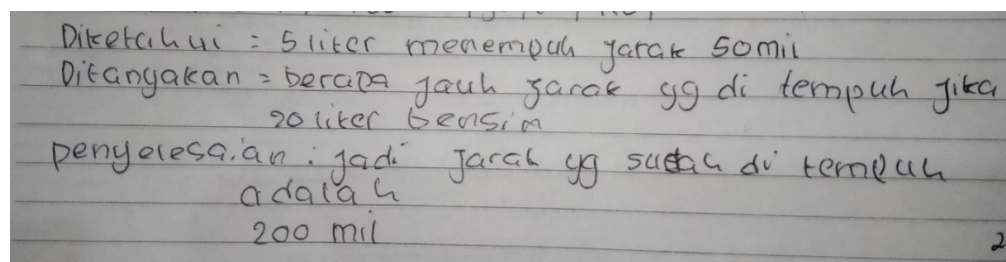 Diketahui = 5 liter menempuh jarak 50 mil
Ditanyakan = berapa jauh jarak yg di tempuh jika
20 liter bensin
penyelesaian : jadi jarak yg sudah di tempuh
adalah
200 mil
2